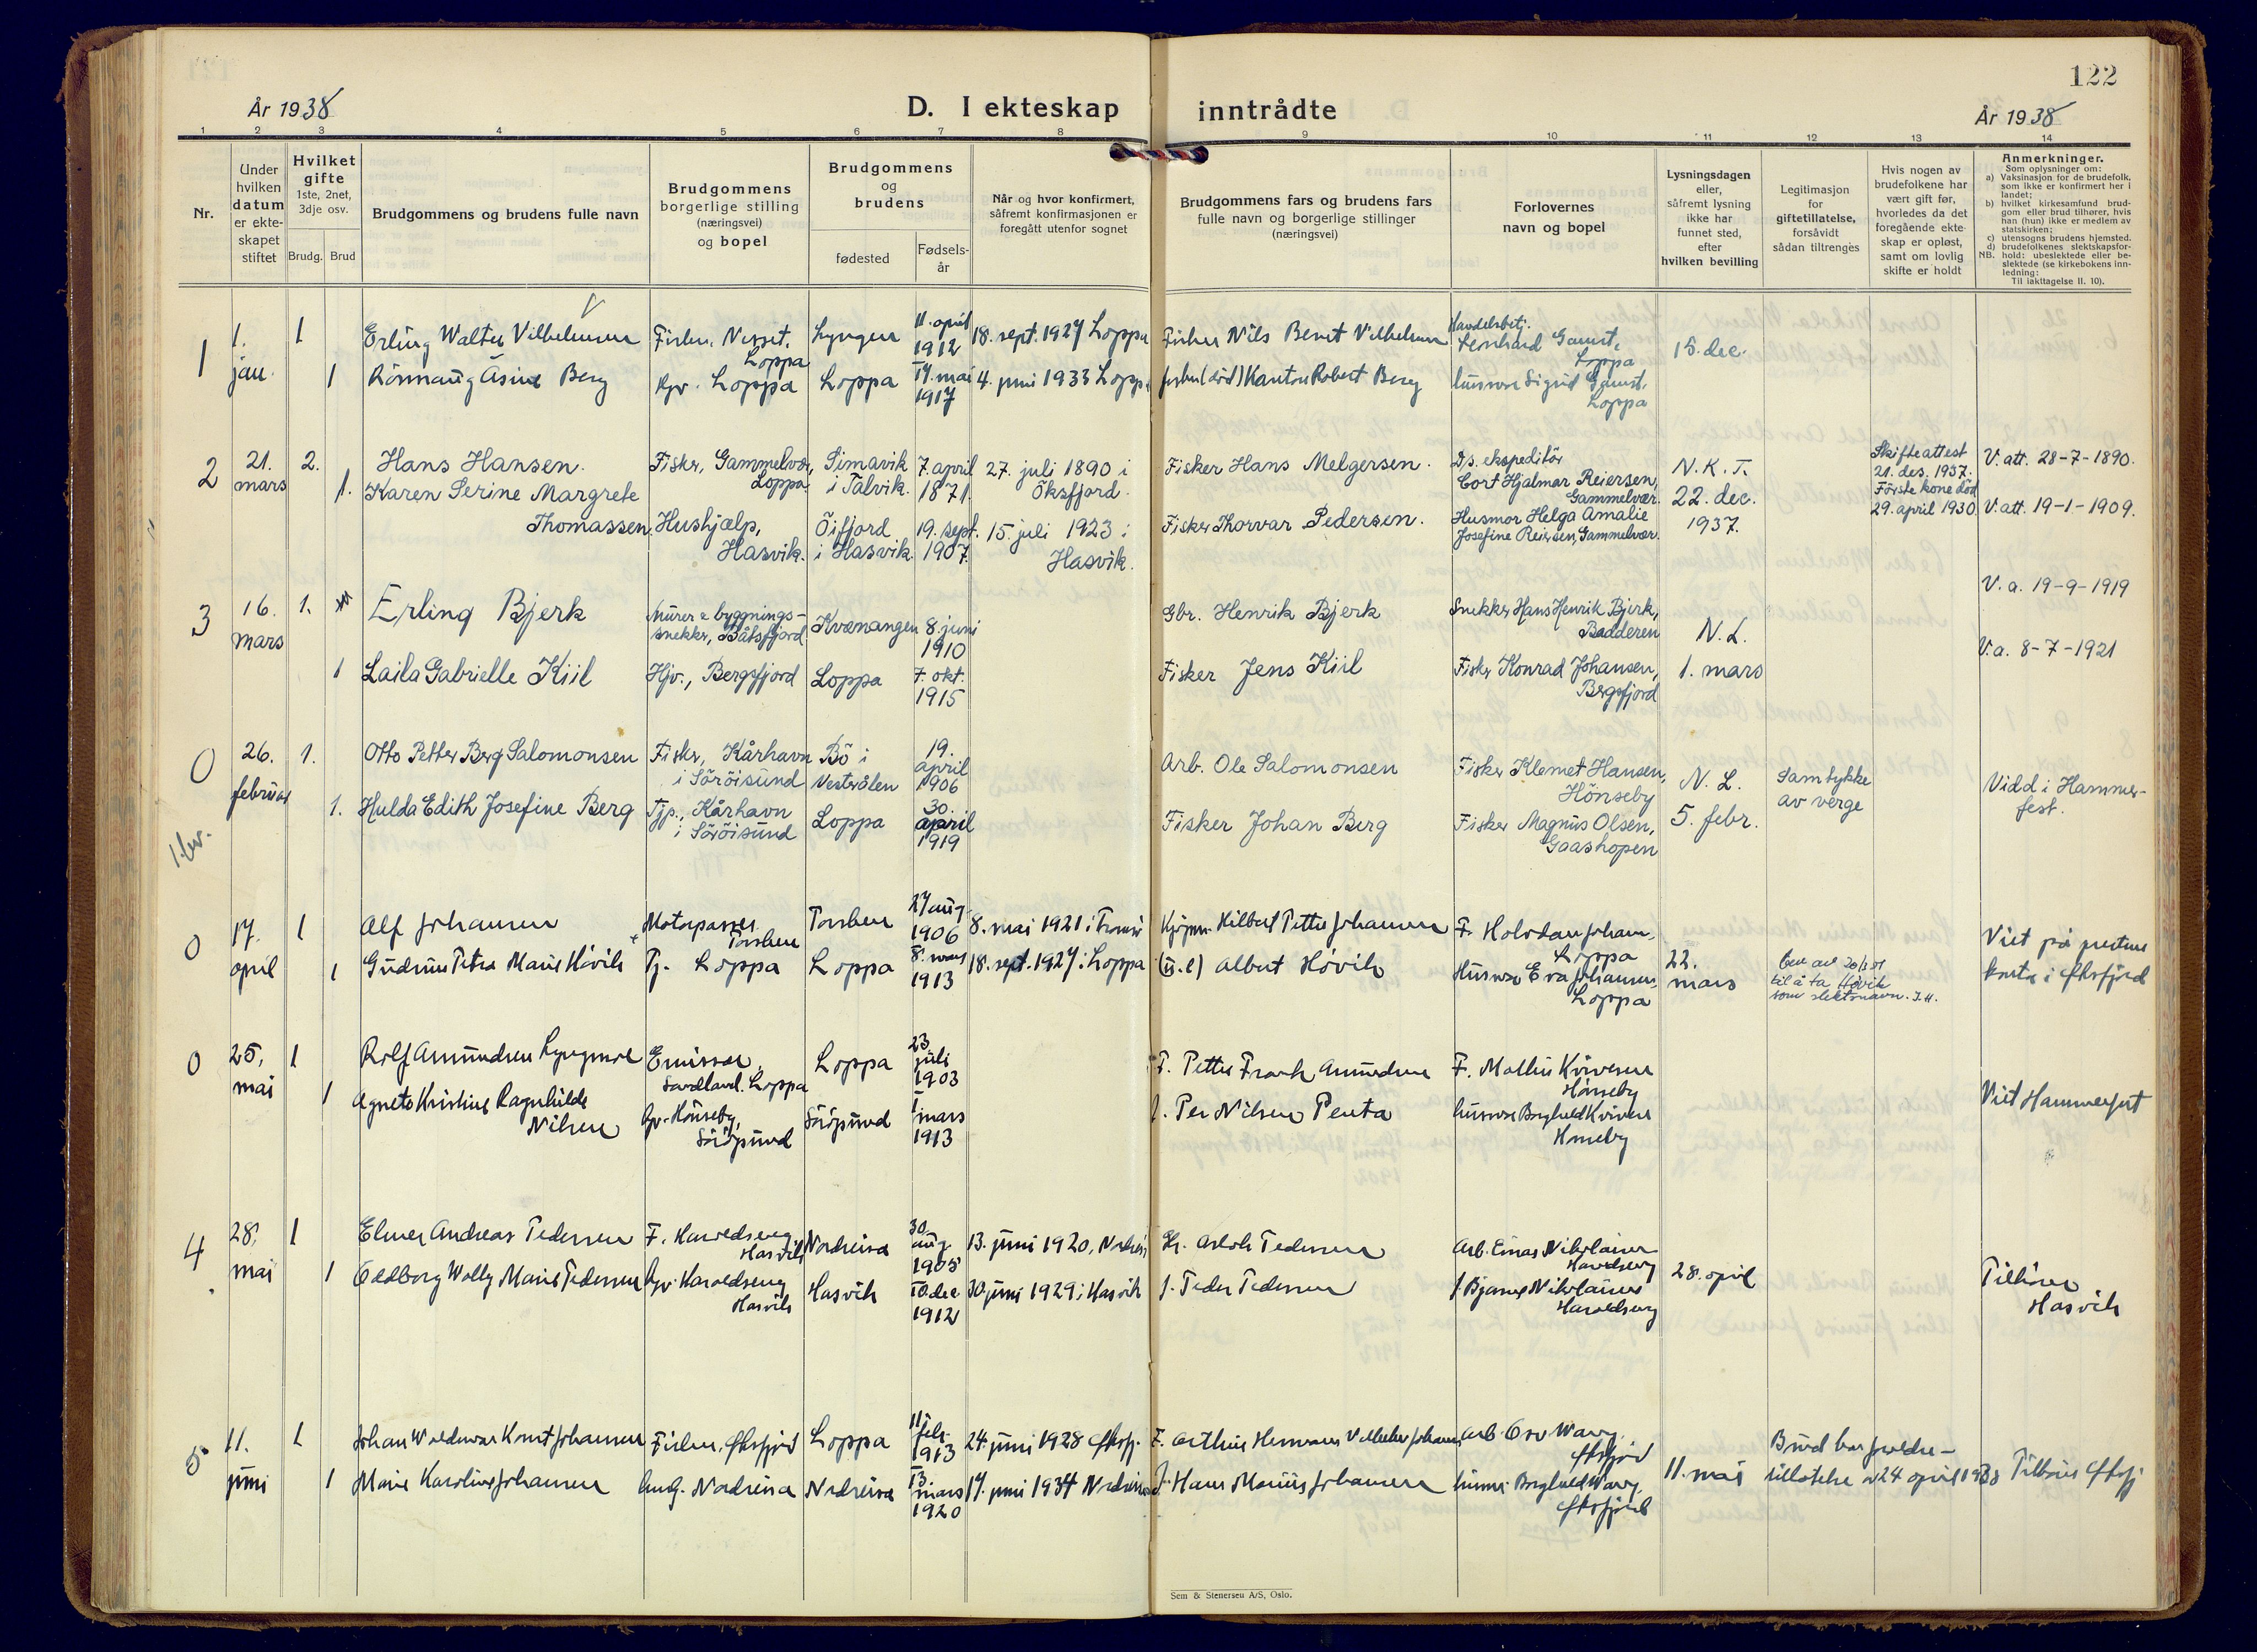 122
År 1938
D. I ekteskap inntrådte
År 1938
1 2 3 4 5 6 7 8 9 10 11 12 13 14
Nr.
Under
hvilken
datum
er ekte-
skapet
stiftet
Hvilket
gifte
1ste, 2net,
3dje osv.
Brudg. Brud
Brudgommens og brudens fulle navn
Brudgommens
borgerlige stilling
(næringsvei)
og bopel
Brudgommens
og
brudens
fødested
Fødsels-
år
Når og hvor konfirmert,
såfremt konfirmasjonen er
foregått utenfor sognet
Brudgommens fars og brudens fars
fulle navn og borgerlige stillinger
(næringsvei)
Forlovernes
navn og bopel
Lysningsdagen
eller,
såfremt lysning
ikke har
funnet sted,
efter
hvilken bevilling
Legitimasjon
for
giftetillatelse,
forsåvidt
sådan tiltrenges
Hvis nogen av
brudefolkene har
vært gift før,
hvorledes da det
foregående ekte-
skap er opløst,
samt om lovlig
skifte er holdt
Anmerkninger.
Som oplysninger om:
a) Vaksinasjon for de brudefolk,
som ikke er konfirmert her i
landet;
b) hvilket kirkesamfund brud-
gom eller brud tilhører, hvis
han (hun) ikke er medlem av
statskirken;
c) utensogns brudens hjemsted.
d) brudefolkenes slektskapsfor-
hold: ubeslektede eller be-
slektede (se kirkebokens inn-
ledning:
NB.
Til iakttagelse II. 10).
1
1.
jan.
1
1
Erling Walter Vilhelmsen
Rönnaug Asine Berg
Fisker, Nesset,
Loppa
Hjv. Loppa
Lyngen
Loppa
11. april
1912
17. mai
1917
18. sept. 1927 Loppa
4. juni 1933 Loppa
Fisker Nils Benet Vilhelmsen
fisker (död) Kantor Robert Berg
Handelsbetj.
Leonhard Gamst,
Loppa
husmor Sigrid Gamst,
Loppa
15. dec.
2
21.
mars
2.
1.
Hans Hansen.
Karen Serine Margrete
Thomassen
Fisker, Gammelvær,
Loppa.
Hushjælp,
Hasvik.
Simavik
i Talvik.
Öifjord
i Hasvik.
7. april
1871.
19. sept.
1907.
27. juli 1890 i
Öksfjord.
15. juli 1923 i
Hasvik.
Fisker Hans Melgersen.
Fisker Thorvar Pedersen.
Ds. ekspeditör
Cort Hjalmar Reiersen,
Gammelvær.
Husmor Helga Amalie
Josefine Reiersen, Gammelvær.
N. K. T.
22. dec.
1937.
Skifteattest
21. des. 1937.
Första kone död
29. april 1930.
V. att. 28-7-1890.
V. att. 19-1-1909.
3
16.
mars
1.
1
Erling Bjerk
Laila Gabrielle Kiil
Murer & bygnings-
snekker, Båtsfjord
Hjv., Bergsfjord
Kvænangen
Loppa
8. juni
1910
7. okt.
1915
Gbr. Henrik Bjerk
Fisker Jens Kiil
Snekker Hans Henrik Bjerk,
Badderen
Fisker Konrad Johansen,
Bergsfjord
N. L.
1. mars
V. a. 19-9-1919
V. a. 8-7-1921
0
26.
februar
1.
1.
Otto Petter Berg Salomonsen
Hulda Edith Josefine Berg
Fisker, Kårhavn
i Söröisund
Tjp., Kårhavn
i Söröisund
Bö i
Vesterålen
Loppa
19.
april
1906
30.
april
1919
Arb. Ole Salomonsen
Fisker Johan Berg
Fisker Klemet Hansen,
Hönseby
Fisker Magnus Olsen,
Gaashopen
N. L.
5. febr.
Samtykke
av verge
Vidd i Hammer-
fest.
0
17.
april
1
1
Alf Johansen
Gudrun Petra Marie Hövik
Motorpasser
Torsken
Tj. Loppa
Torsken
Loppa
27 aug.
1906
8. mars
1913
8. mai 1921 i Tromsö
18. sept. 1927 i Loppa
Kjøpm. Hilbert Petter Johansen
(u.e) Albert Hövik
F. Halvdan Johans.
Loppa
Husmor Eva Johansen,
Loppa
22.
mars
til å ta Hövik
som slektsnavn. J.H.
Viet på prestens
kontor i Øksfjord
0
25.
mai
1
1
Rolf Amundsen Lyngmoe
Agnete Kristine Ragnhilde
Nilsen
Emissær,
Sandland. Loppa
Hjv. Hönseby,
Söröysund
Loppa
Söröysund
23
juli
1903
1
mars
1913
F. Petter Frank Amundsen
f. Per Nilsen Penta
F. Mathis Kvivesen
Hönseby
husmor Borghild Kvivesen
Hönseby
Viet Hammerfest
4
28.
mai
1
1
Elmer Andreas Pedersen
Oddborg Wolly Marie Pedersen
F. Hasvik
Hjv.
Hasvik
Nordreisa
Hasvik
30.
aug.
1905
10. dec
1912
13. juni 1920, Nordreisa
30 juni 1929 i Hasvik
f. Peder Pedersen
Arb. Einar Nikolaisen
f Bjarne Nikolaisen
28. april
Tilhörer
Hasvik
5
11.
juni
1
1
Johan Waldemar Kornet Johansen
Marie Karoline Johansen
Fisker, Øksfjord
Nordreisa
Loppa
Nordreisa
11
feb.
1913
13.
mars
1920
24. juni 1928 Øksfj.
17. juni 1934 Nordreisa
F. Arthur Hermann Vilhelm Johansen
f. Hans Marius Johansen
Arb. Warg,
Øksfjord
Borghild Warg,
Øksfjord
11. mai
Brud har foreldre-
tillatelse av 24 april 1938
Tilhörer Øksfj.
Sem & Stenersen A/S, Oslo.